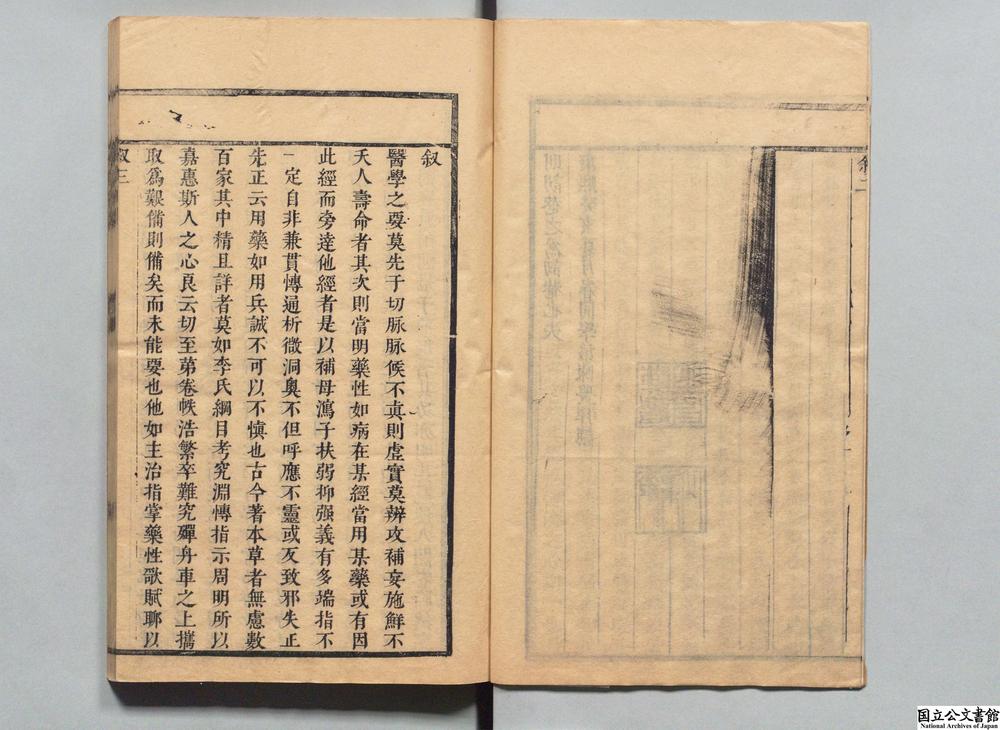 叙二
叙
醫學之要莫先于切脉脉候不真則虛實莫辨攻補妄施鮮不
夭人壽命者其次則當明藥性如病在某經當用某藥或有因
此經而旁達他經者是以補母瀉子扶弱抑强義有多端指不
一定自非兼貫愽通析微洞奧不但呼應不靈或反致邪失正
先正云用藥如用兵誠不可以不慎也古今著本草者無慮數
百家其中精且詳者莫如李氏綱目考究淵愽指示周明所以
嘉惠斯人之心良云切至第卷帙浩繁卒難究殫舟車之上攜
取爲艱備則備矣而未能要也他如主治指掌藥性歌賦聊以
叙三
国立公文書館
National Archives of Japan